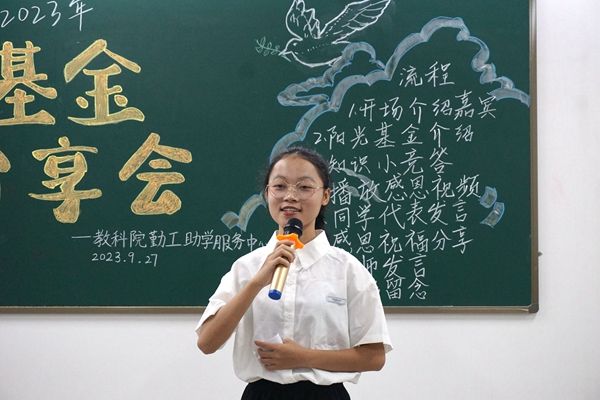 2023年
基金
享会
一教科院勤工助学服务中
2023.9.27
流程
1.开场介绍嘉宾
2.阳光基金介绍
知识小竞答
播放感恩视频
同学代表发言
感恩祝福分享
师发言
留念